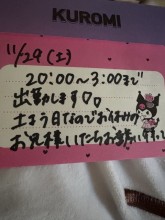 KUROMI
11/29(土)
20:00~3:00まで
出勤します♡♡
土よう日なのでお時間
お兄様いたらお誘い